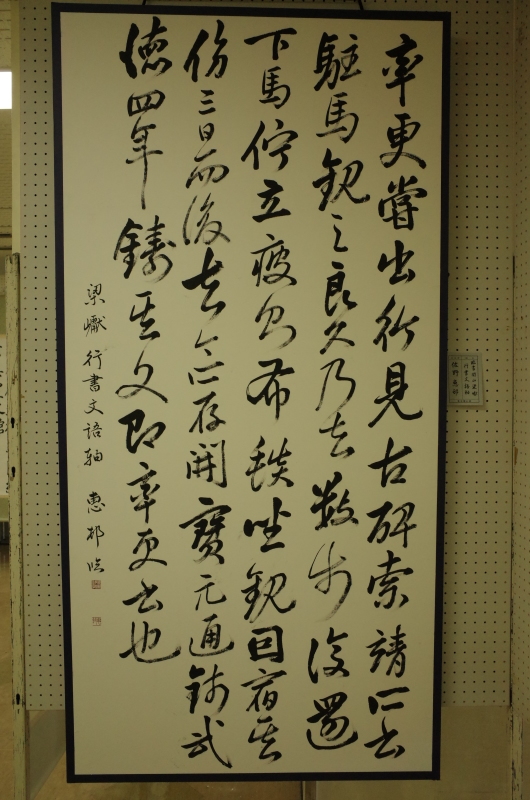 率更嘗出行見古碑索靖所書
駐馬観之良久乃去數步復還
下馬佇立疲則布毯坐観因宿其
傍三日而後去今所存開寶元通錢武
德四年鑄其文即率更書也
梁巘行書文語軸 惠邨臨